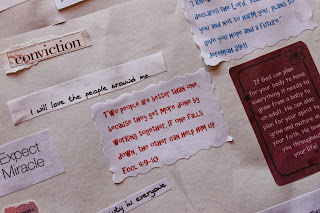 declares the Lord, "plans to
you and not to harm you, plans to
give you hope and a future."
Jeremiah 29:11
conviction
I will love the people around me
Two people are better than one,
because they get more done by
working together. If one falls
down, the other can help him up.
Eccl 4:9-10
If God can plan
for your body to have
everything it needs to
grow from a baby to
an adult, He can also
plan for your spirit to
grow and mature in
your faith. He loves
you throughout
your life!
Expect
Miracle
in everyone